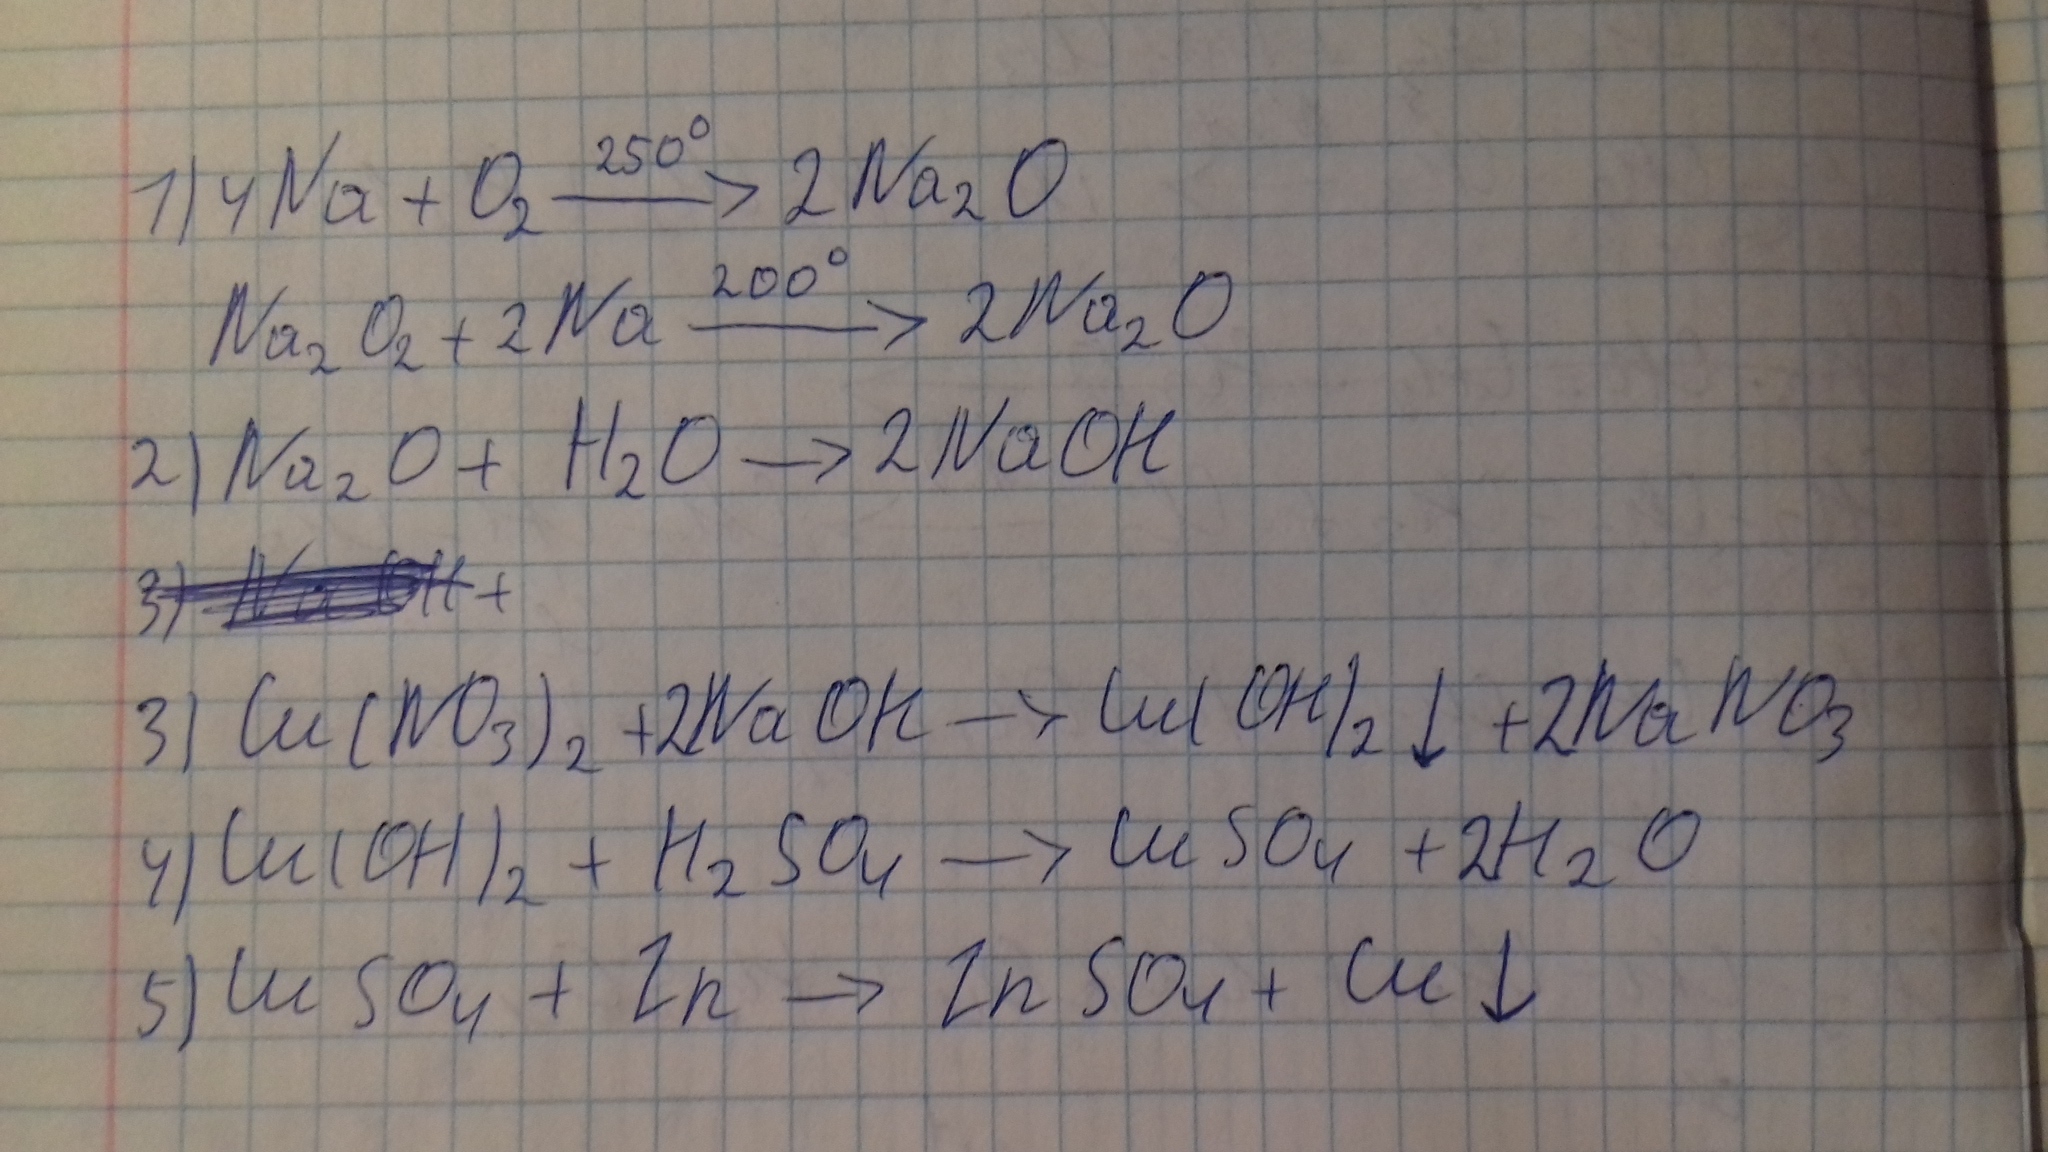 1) 4Na + O₂ —250°→ 2Na₂O
Na₂O₂ + 2Na —200°→ 2Na₂O
2) Na₂O + H₂O → 2NaOH
3) NaOH +
3) Cu(NO₃)₂ + 2NaOH → Cu(OH)₂↓ + 2NaNO₃
4) Cu(OH)₂ + H₂SO₄ → CuSO₄ + 2H₂O
5) CuSO₄ + Zn → ZnSO₄ + Cu↓